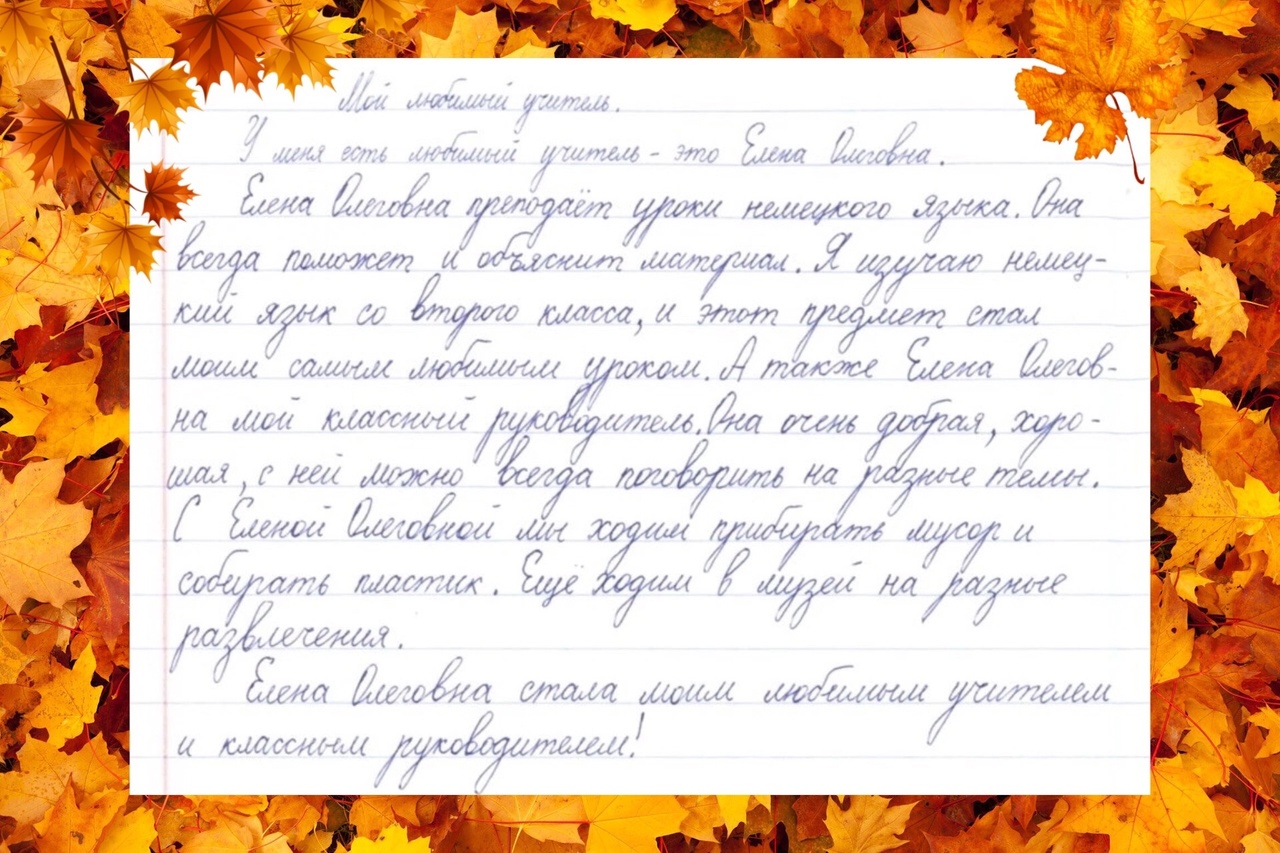 Мой любимый учитель.
У меня есть любимый учитель - это Елена Олеговна.
Елена Олеговна преподаёт уроки немецкого языка. Она
всегда поможет и объяснит материал. Я изучаю немец-
кий язык со второго класса, и этот предмет стал
моим самым любимым уроком. А также Елена Олегов-
на мой классный руководитель. Она очень добрая, хоро-
шая, с ней можно всегда поговорить на разные темы.
С Еленой Олеговной мы ходим прибирать мусор и
собирать пластик. Ещё ходим в музей на разные
развлечения.
Елена Олеговна стала моим любимым учителем
и классным руководителем!